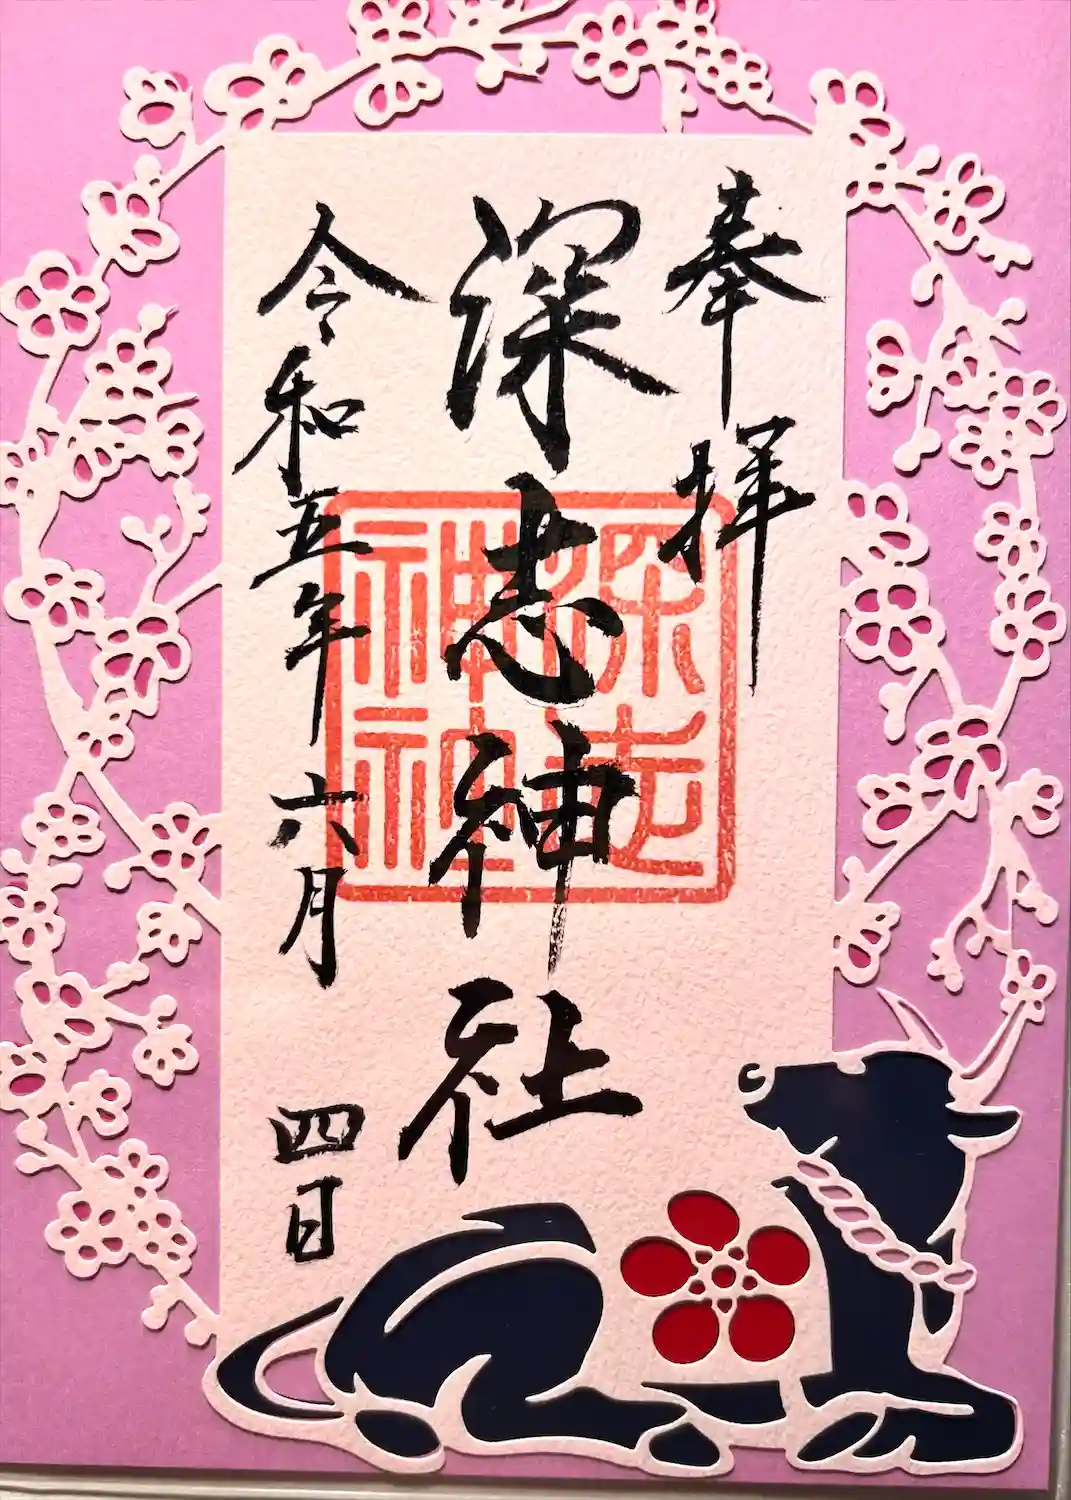 奉拝
深志神社
令和五年六月四日
深志
神社